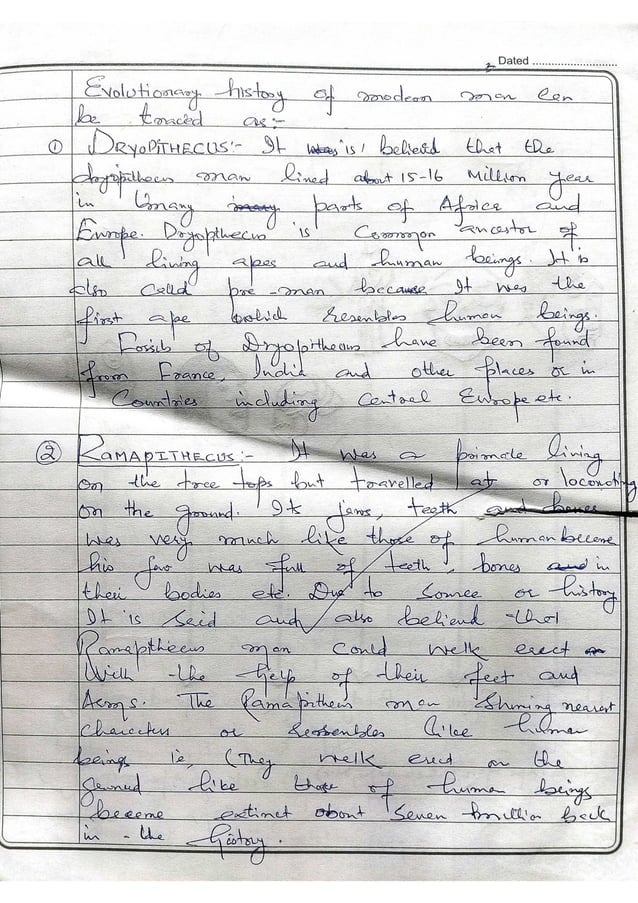 Dated ............................
Evolutionary history of modern man can
be traced as:-
① DRYOPITHECUS:- It was is believd that the
dryopithecus man lined about 15-16 Million year
in many parts of Africa and
Europe. Dryopthecus is Common ancestor of
all living apes and human beings. It is
also called pre-man because It was the
first ape which resembles human beings.
Fossils of Dryopithecus have been found
from France, India and other places or in
Countries including Central Europe etc.
② RAMAPITHECUS:- It was a primate living
on the tree tops but travelled at or locomoting
on the ground. Its jaws, teeth and bones
was very much like those of human becene
his jaw was full of teeth, bones and in
their bodies etc. Due to Source or history
It is said and also believd that
Ramapthecus man could walk erect
With the help of their feet and
Arms. The Ramapithecus man Shining nearest
characters or resembles like human
beings ie, (They walk erect on the
ground like those of human beings
became extinct about seven million back
in the history.